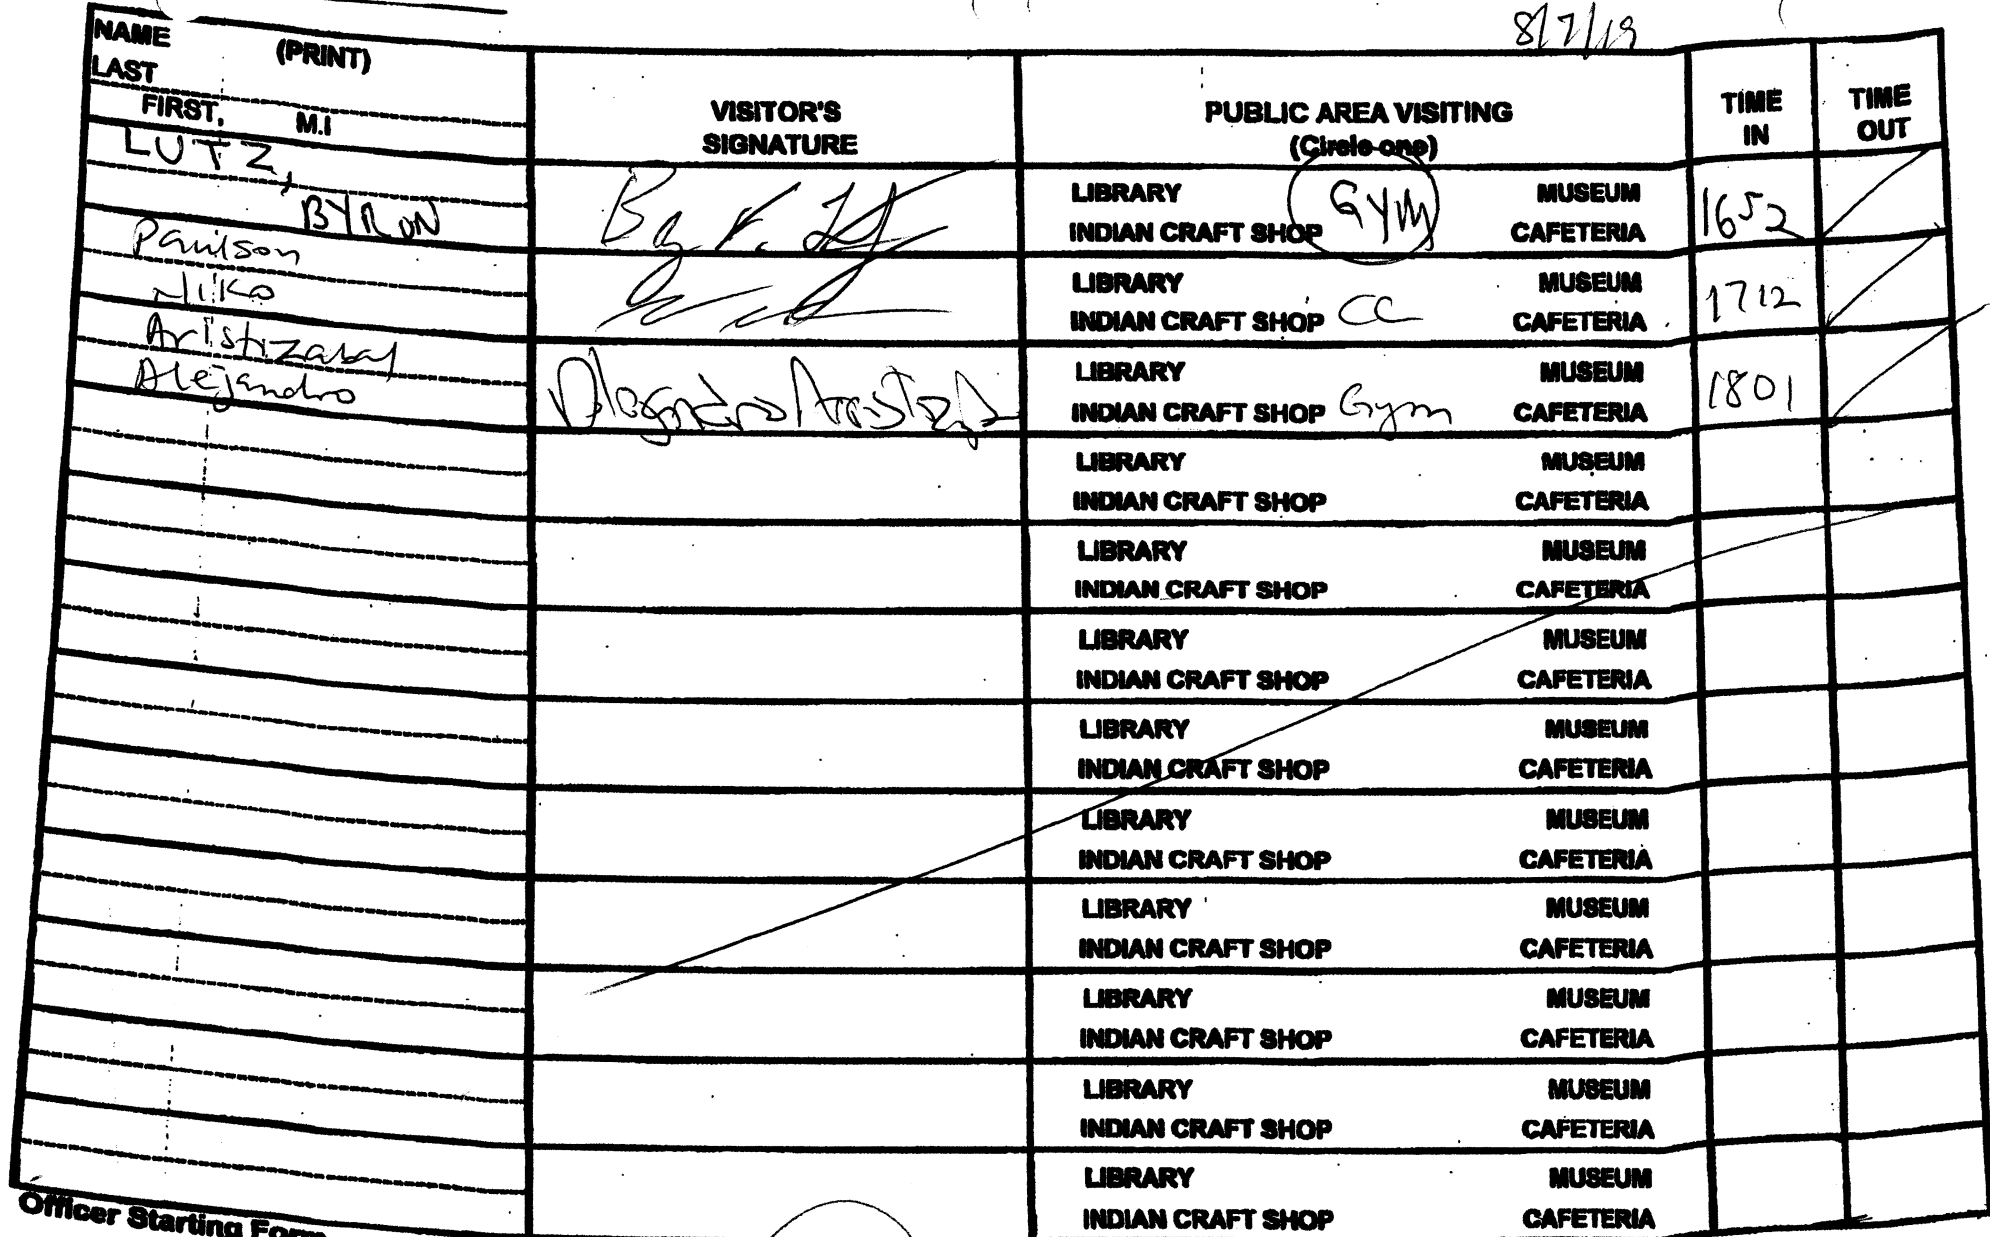 8/7/19
NAME (PRINT)
LAST
FIRST, M.I
VISITOR'S
SIGNATURE
PUBLIC AREA VISITING
(Circle one)
TIME
IN
TIME
OUT
LUTZ,
BYRON
LIBRARY GYM MUSEUM
INDIAN CRAFT SHOP CAFETERIA
1652
Paulson
Niko
LIBRARY MUSEUM
INDIAN CRAFT SHOP CC CAFETERIA
1712
Aristizabal
Alejandro
Alejandro Aristizabal
LIBRARY MUSEUM
INDIAN CRAFT SHOP Gym CAFETERIA
1801
LIBRARY MUSEUM
INDIAN CRAFT SHOP CAFETERIA
LIBRARY MUSEUM
INDIAN CRAFT SHOP CAFETERIA
LIBRARY MUSEUM
INDIAN CRAFT SHOP CAFETERIA
LIBRARY MUSEUM
INDIAN CRAFT SHOP CAFETERIA
LIBRARY MUSEUM
INDIAN CRAFT SHOP CAFETERIA
LIBRARY MUSEUM
INDIAN CRAFT SHOP CAFETERIA
LIBRARY MUSEUM
INDIAN CRAFT SHOP CAFETERIA
LIBRARY MUSEUM
INDIAN CRAFT SHOP CAFETERIA
LIBRARY MUSEUM
INDIAN CRAFT SHOP CAFETERIA
Officer Starting Form